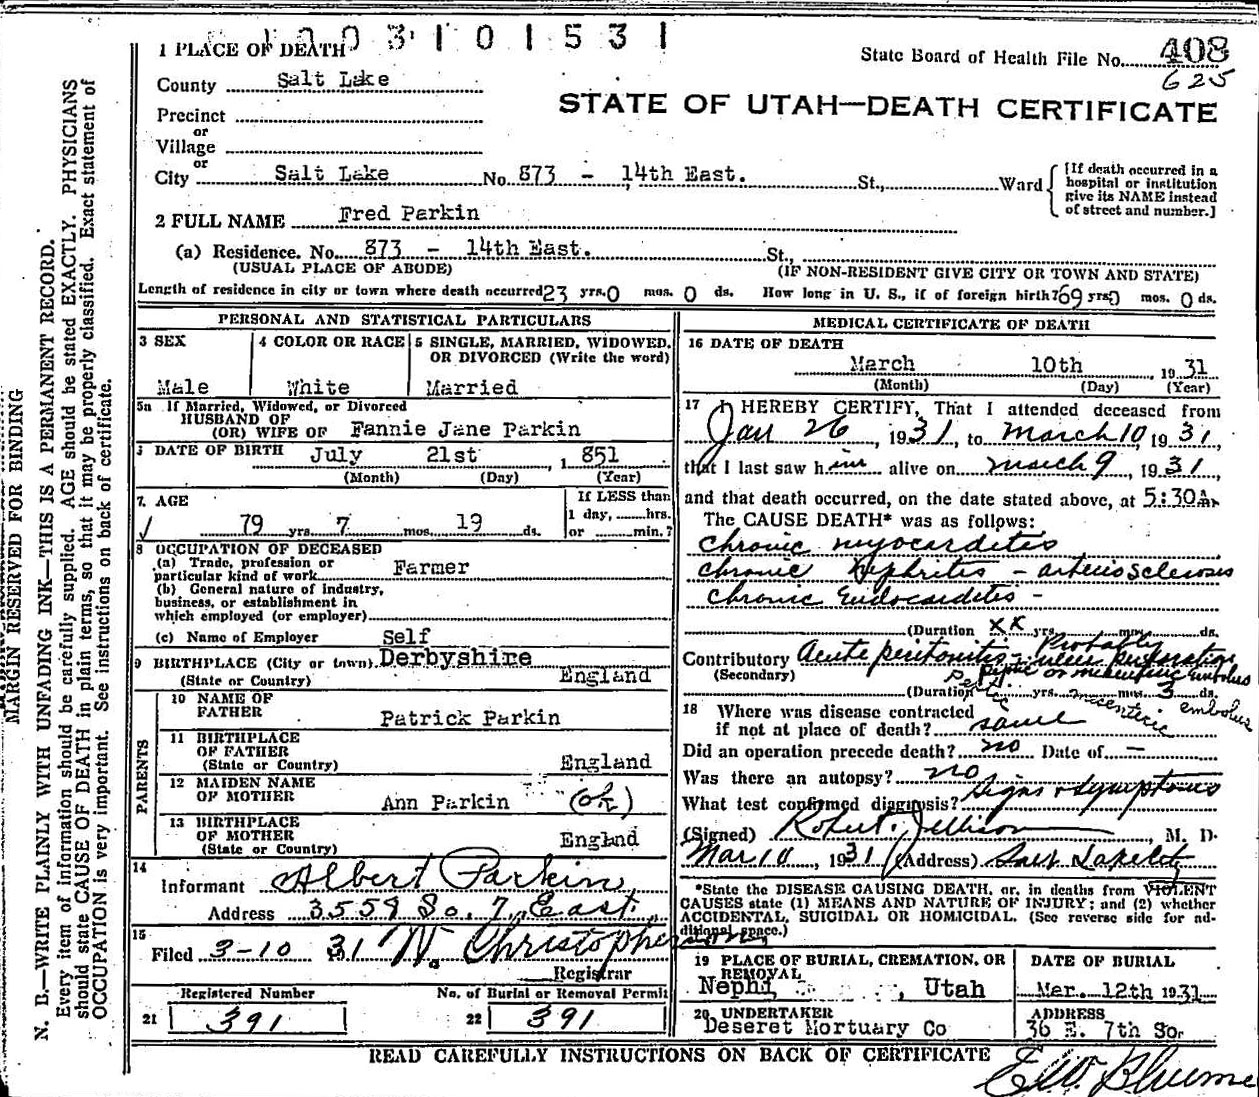 1003101531
1 PLACE OF DEATH
State Board of Health File No. 408
625
County Salt Lake
STATE OF UTAH—DEATH CERTIFICATE
Precinct
or
Village
or
City Salt Lake No. 873 - 14th East. St., Ward
[If death occurred in a
hospital or institution
give its NAME instead
of street and number.]
2 FULL NAME Fred Parkin
(a) Residence. No. 873 - 14th East. St.,
(USUAL PLACE OF ABODE) (IF NON-RESIDENT GIVE CITY OR TOWN AND STATE)
Length of residence in city or town where death occurred 23 yrs. 0 mos. 0 ds. How long in U. S., if of foreign birth? 69 yrs. 0 mos. 0 ds.
PERSONAL AND STATISTICAL PARTICULARS
3 SEX
Male
4 COLOR OR RACE
White
5 SINGLE, MARRIED, WIDOWED,
OR DIVORCED (Write the word)
Married
5a If Married, Widowed, or Divorced
HUSBAND OF
(OR) WIFE OF Fannie Jane Parkin
DATE OF BIRTH July 21st , 1851
(Month) (Day) (Year)
7. AGE
79 yrs. 7 mos. 19 ds.
If LESS than
1 day, hrs.
or min.?
8 OCCUPATION OF DECEASED
(a) Trade, profession or
particular kind of work Farmer
(b) General nature of industry,
business, or establishment in
which employed (or employer)
(c) Name of Employer Self
9 BIRTHPLACE (City or town) Derbyshire
(State or Country) England
PARENTS
10 NAME OF
FATHER Patrick Parkin
11 BIRTHPLACE
OF FATHER
(State or Country) England
12 MAIDEN NAME
OF MOTHER Ann Parkin (ok)
13 BIRTHPLACE
OF MOTHER
(State or Country) England
14
Informant Albert Parkin
Address 3559 So. 7 East.
15
Filed 3-10 31 N. Christopherson
Registrar
Registered Number No. of Burial or Removal Permit
21 391 22 391
MEDICAL CERTIFICATE OF DEATH
16 DATE OF DEATH
March 10th , 1931
(Month) (Day) (Year)
17 I HEREBY CERTIFY, That I attended deceased from
Jan 26, 1931, to March 10, 1931,
that I last saw him alive on March 9, 1931,
and that death occurred, on the date stated above, at 5:30 A.
The CAUSE DEATH* was as follows:
Chronic myocarditis
chronic Nephritis - arteriosclerosis
chronic Endocarditis -
(Duration XX yrs. mos. ds.
Contributory Acute peritonitis - Probably
(Secondary) ulcer perforation
peptic or mesenteric embolus
(Duration yrs. mos. 3 ds.
peptic mesenteric embolus
18 Where was disease contracted
if not at place of death? same
Did an operation precede death? no Date of —
Was there an autopsy? no
What test confirmed diagnosis? Signs & symptoms
(Signed) Robert Jellison, M. D.
Mar 10, 1931 (Address) Salt Lake City
*State the DISEASE CAUSING DEATH, or, in deaths from VIOLENT
CAUSES state (1) MEANS AND NATURE OF INJURY; and (2) whether
ACCIDENTAL, SUICIDAL OR HOMICIDAL. (See reverse side for ad-
ditional space.)
19 PLACE OF BURIAL, CREMATION, OR
REMOVAL
Nephi , Utah
DATE OF BURIAL
Mar. 12th 1931
20 UNDERTAKER
Deseret Mortuary Co
ADDRESS
36 E. 7th So.
READ CAREFULLY INSTRUCTIONS ON BACK OF CERTIFICATE
MARGIN RESERVED FOR BINDING
N. B.—WRITE PLAINLY WITH UNFADING INK—THIS IS A PERMANENT RECORD.
Every item of information should be carefully supplied. AGE should be stated EXACTLY. PHYSICIANS
should state CAUSE OF DEATH in plain terms, so that it may be properly classified. Exact statement of
OCCUPATION is very important. See instructions on back of certificate.